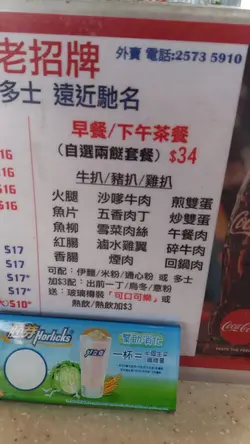 外賣 電話:2573 5910
老招牌
多士 遠近馳名
早餐/下午茶餐
(自選兩餸套餐) $34
牛扒/豬扒/雞扒
火腿 沙嗲牛肉 煎雙蛋
魚片 五香肉丁 炒雙蛋
魚柳 雪菜肉絲 午餐肉
紅腸 滷水雞翼 碎牛肉
香腸 煙肉 回鍋肉
可配:伊麵/米粉/通心粉 或 多士
加$3配:出前一丁/烏冬/意粉
送:玻璃樽裝「可口可樂」或
熱飲/熱飲加$3
$16
$16
$17
$17
$17*
$17*
$10*
Horlicks
好立克
一杯=